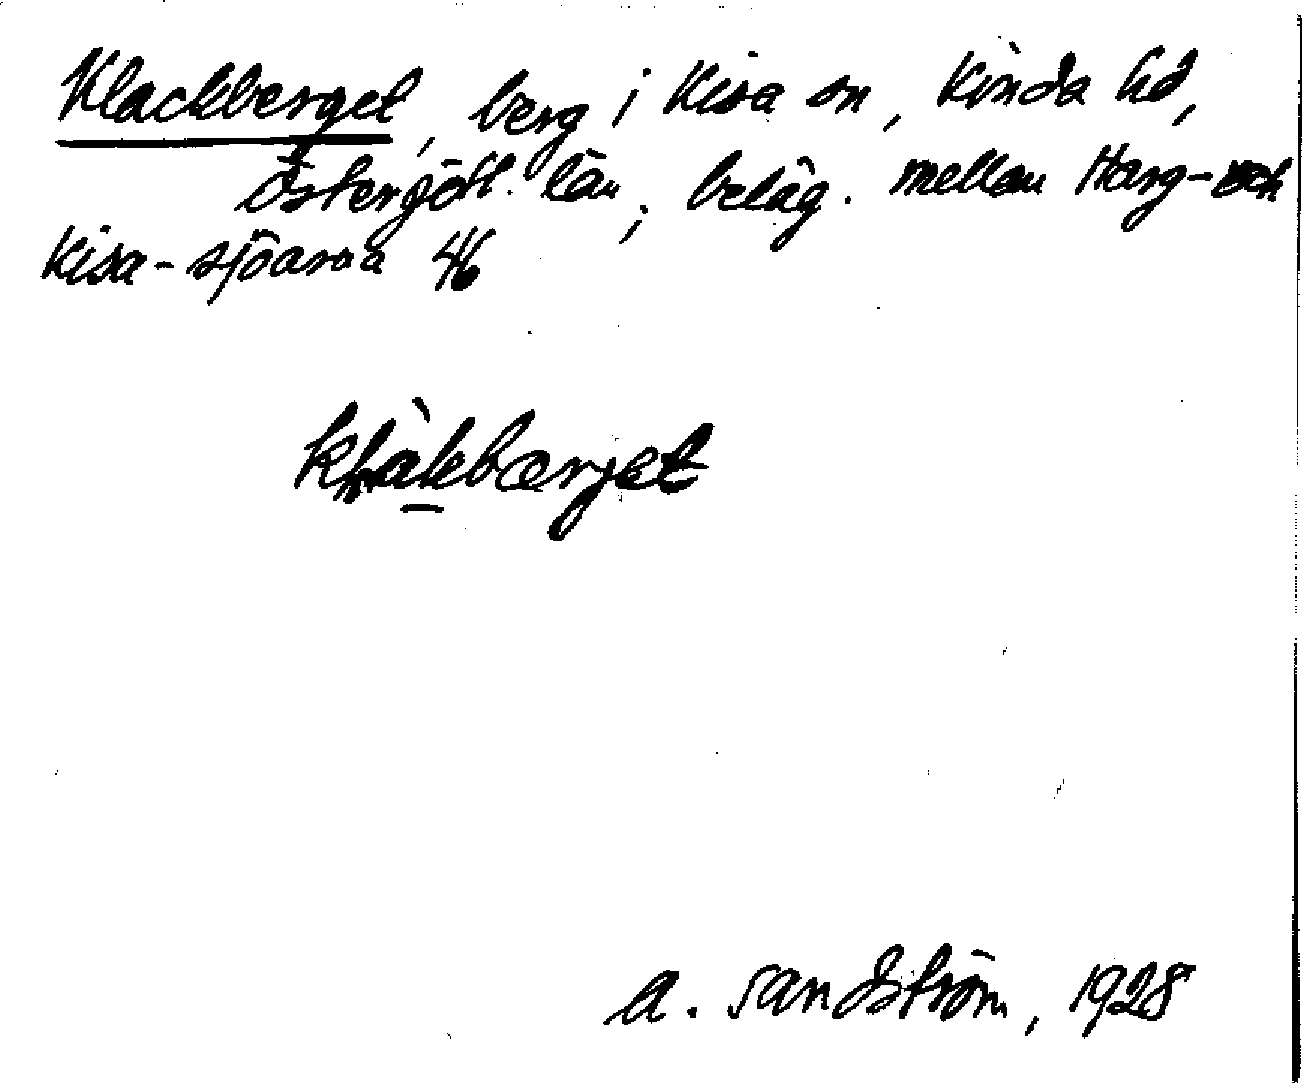 Klackberget, berg i Kisa sn, Kinda hd,
Östergötl. län; beläg. mellan Harg- och
Kisa-sjöarna 46
kḷàkbærjet
A. Sandström, 1928